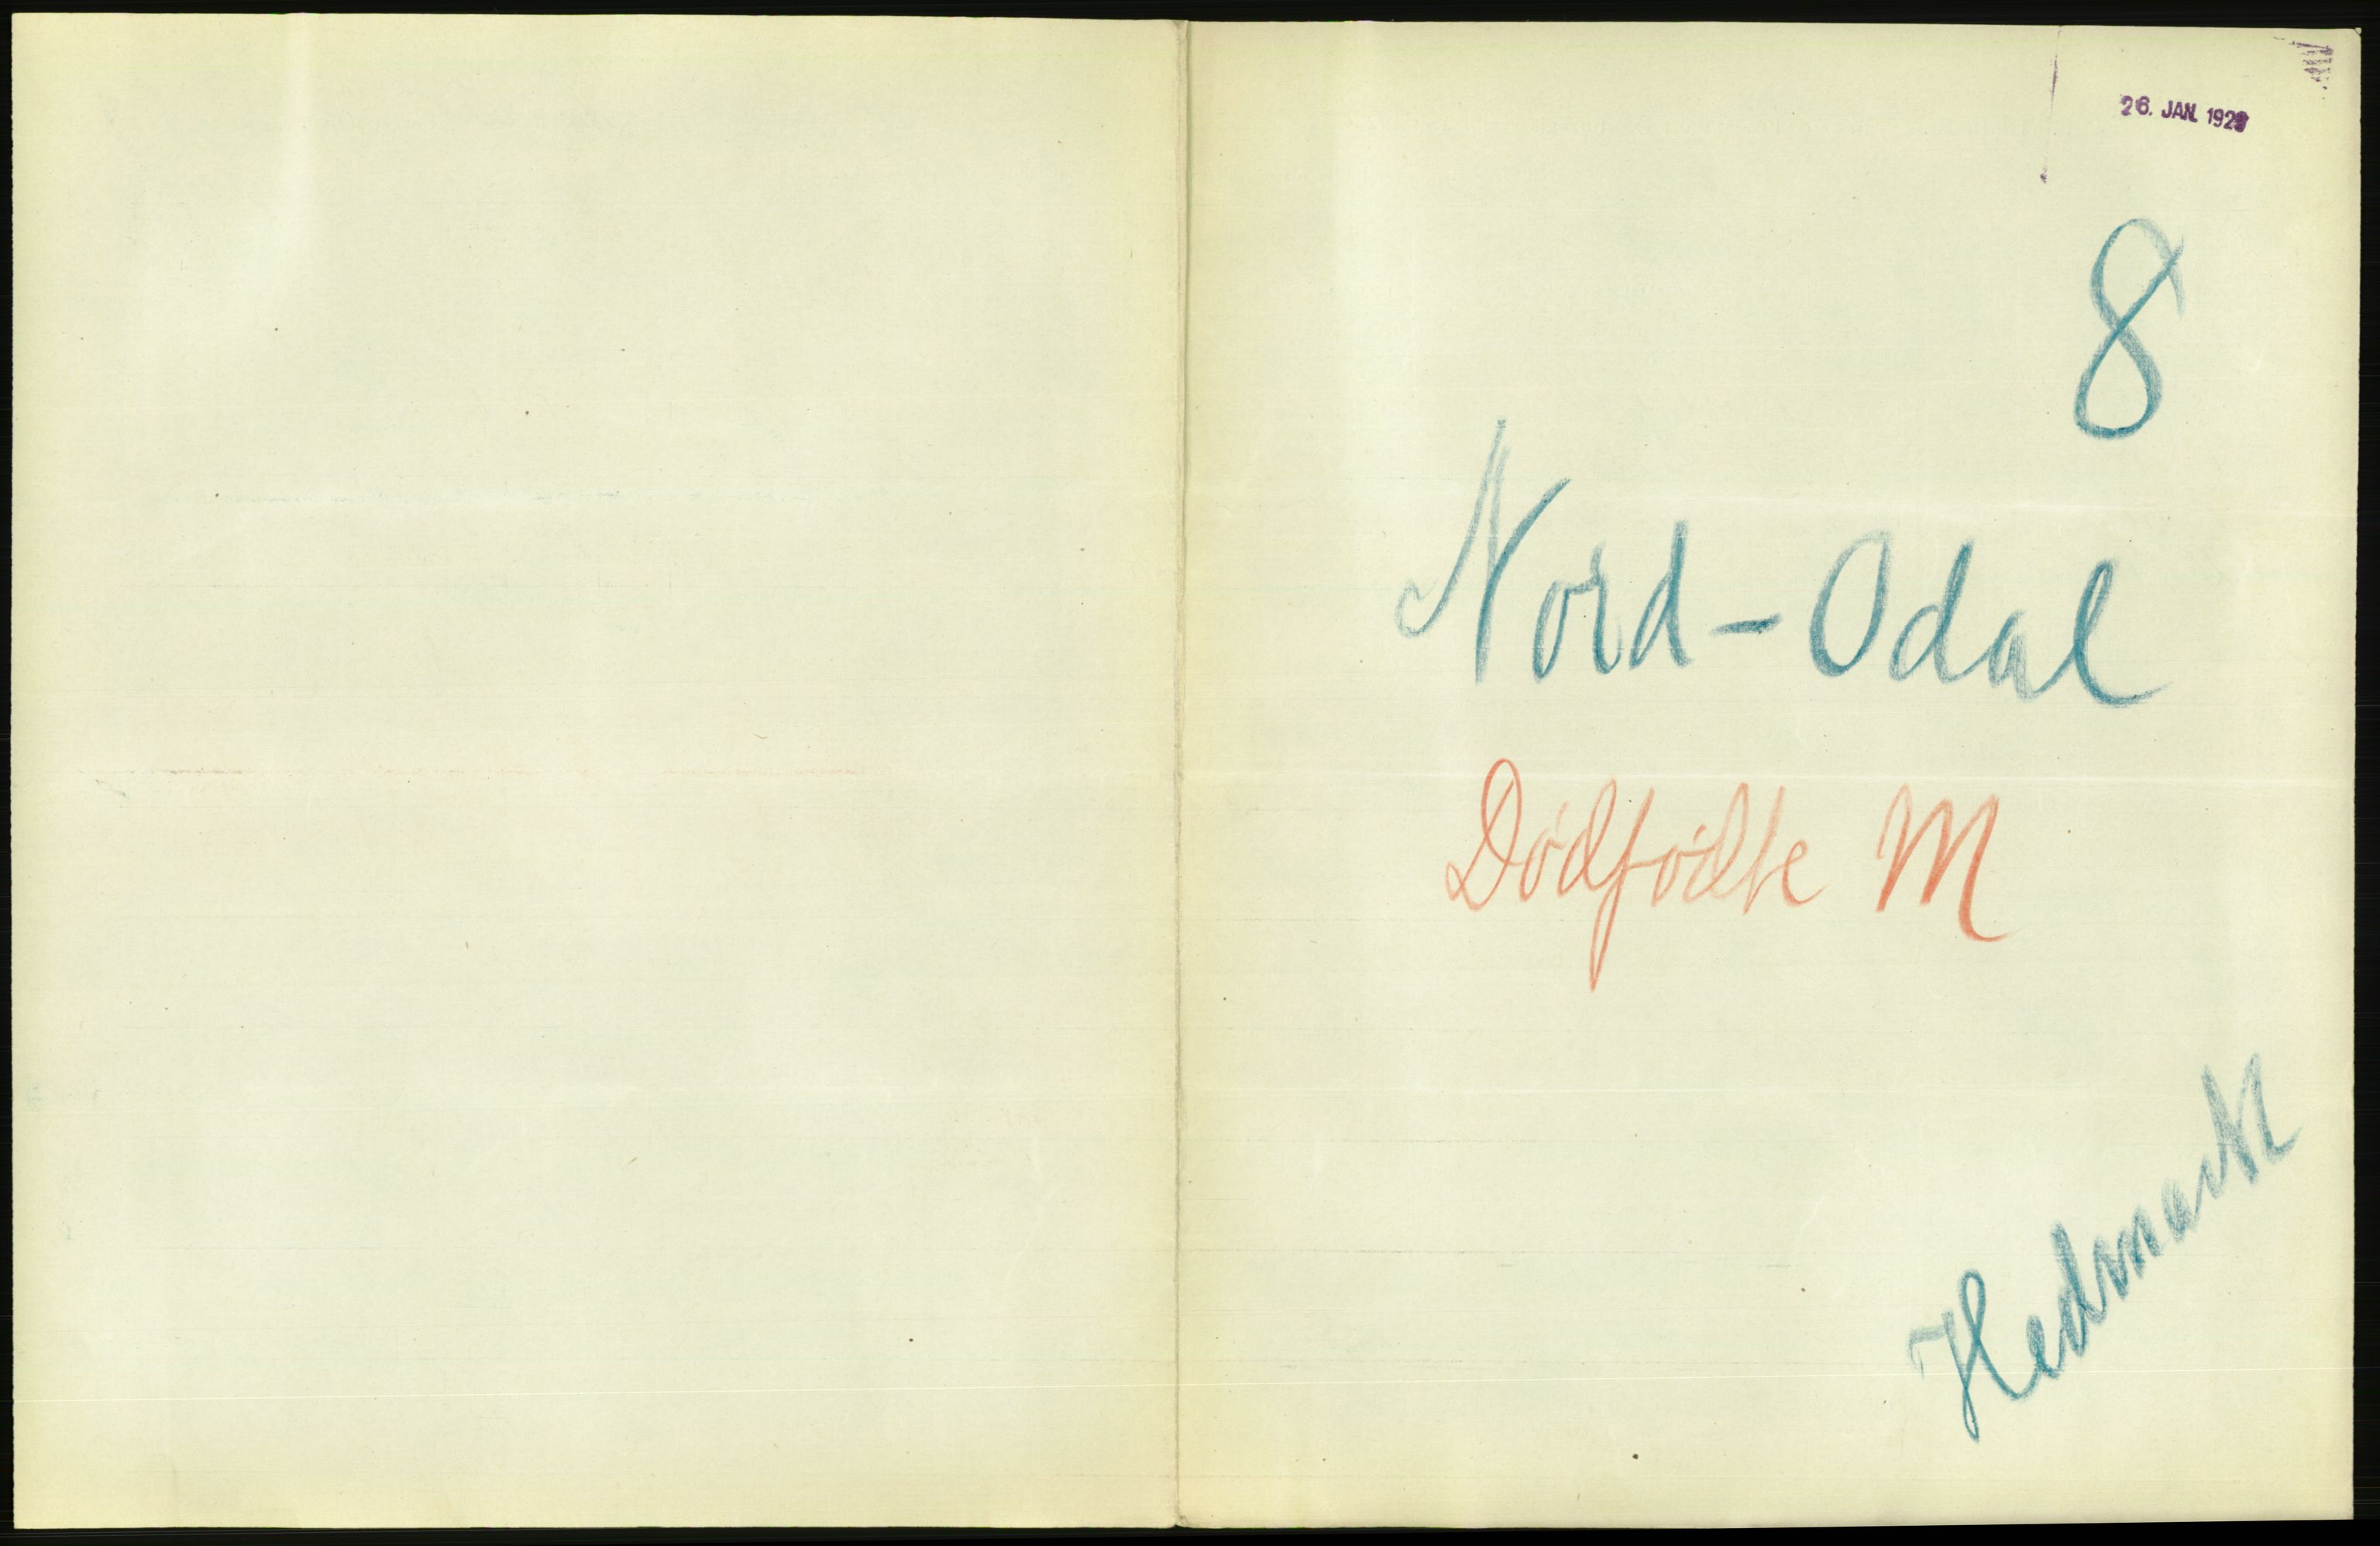 26. JAN. 1923
8
Nord-Odal
Dødfødte M
Hedmark